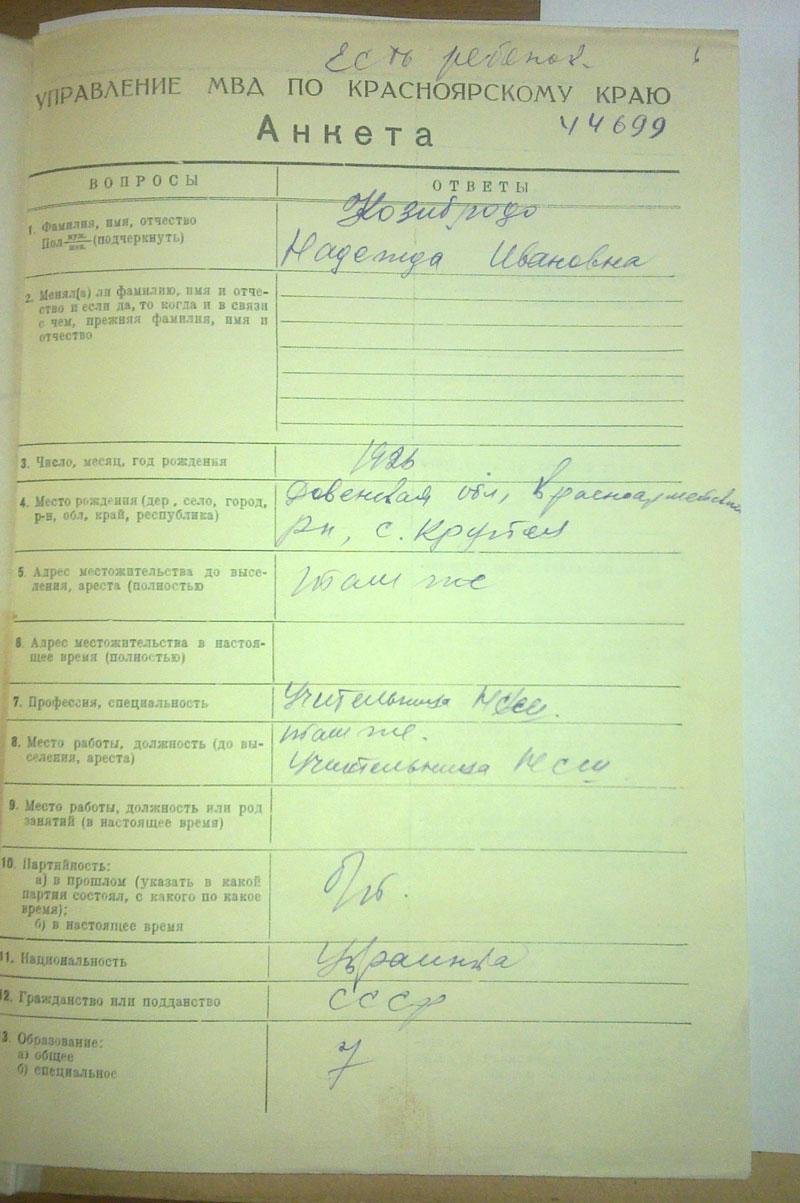 Есть ребенок.
УПРАВЛЕНИЕ МВД ПО КРАСНОЯРСКОМУ КРАЮ
Анкета
44699
ВОПРОСЫ
ОТВЕТЫ
1. Фамилия, имя, отчество
Пол муж. жен. (подчеркнуть)
Козибродо
Надежда Ивановна
2. Менял(а) ли фамилию, имя и отче-
ство и если да, то когда и в связи
с чем, прежняя фамилия, имя и
отчество
3. Число, месяц, год рождения
1926
4. Место рождения (дер, село, город,
р-н, обл, край, республика)
Ровенская обл, Красноармейский
рн, с.
5. Адрес местожительства до высе-
ления, ареста (полностью
там же
6. Адрес местожительства в настоя-
щее время (полностью)
7. Профессия, специальность
Учительница НСШ.
8. Место работы, должность (до вы-
селения, ареста)
там же.
Учительница НСШ
9. Место работы, должность или род
занятий (в настоящее время)
10. Партийность:
а) в прошлом (указать в какой
партии состоял, с какого по какое
время);
б) в настоящее время
б/п.
11. Национальность
Украинка
12. Гражданство или подданство
СССР
3. Образование:
а) общее
б) специальное
7